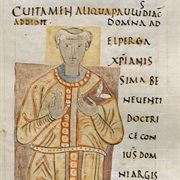 CUI TAMEN ALIQUA PAULUS DIAC̅
ADDIDIT DOMNA AD
ELPERGA
XP̅IANIS
SIMA BE
NEUENTI
DOCTRI
CE CON
IUS DOM
NI ARGIS